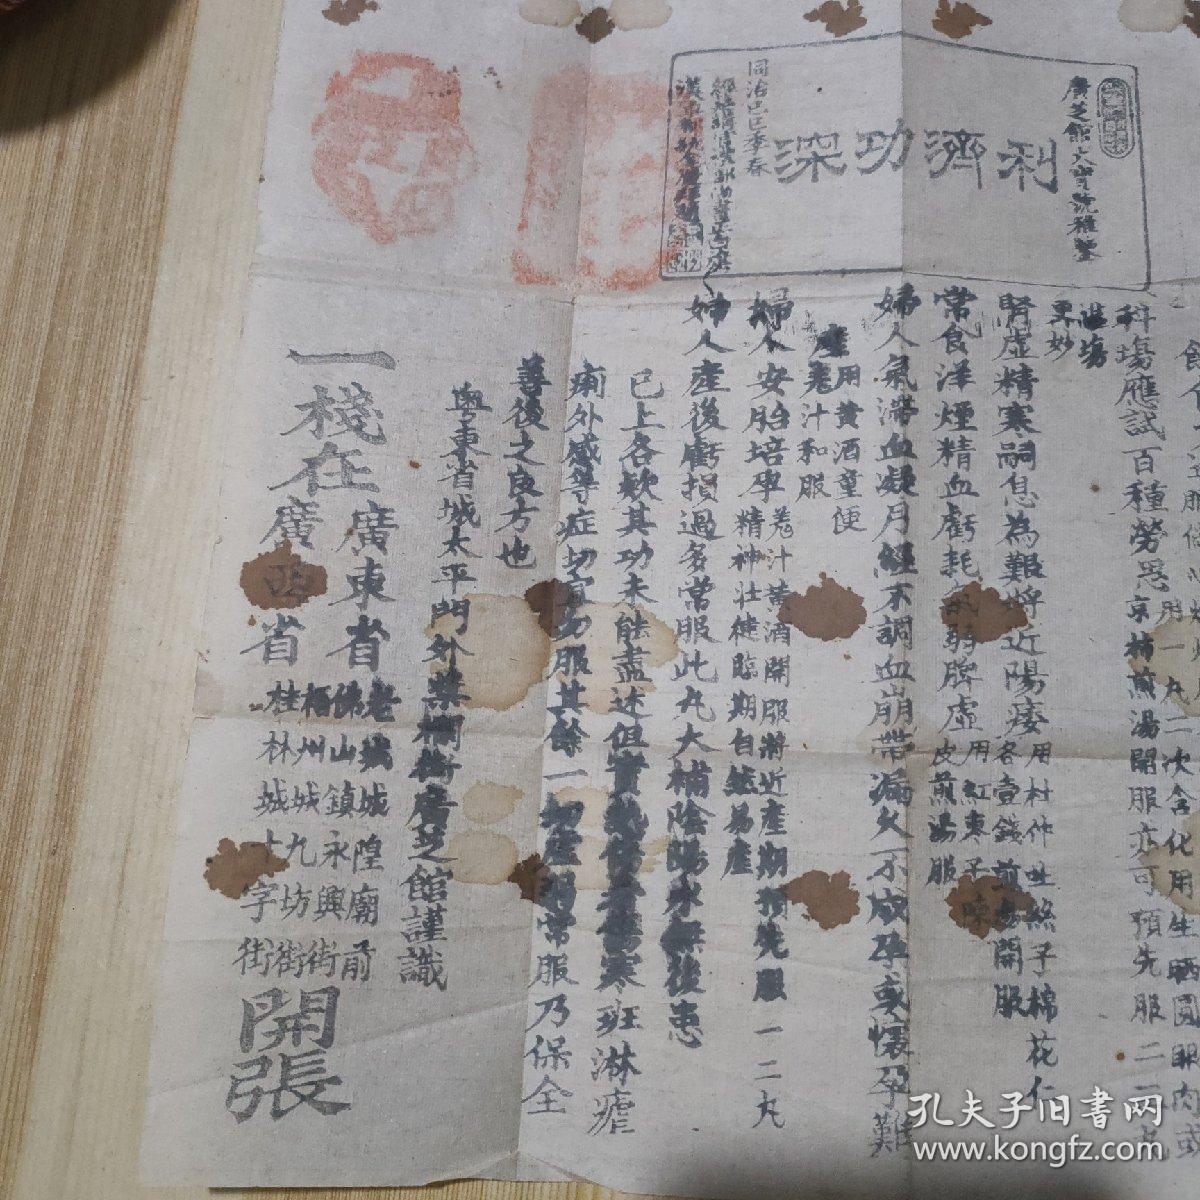 廣芝館大寶號雅鑒
利濟功深
同治己巳季春
科塲應試百種勞思京柿煎湯開服亦可預先服二三丸
更妙
腎虛精寒嗣息為艱將近陽痿
用杜仲菟絲子棉花仁
各壹錢煎湯開服
常食洋煙精血虧耗氣弱脾虛
用紅棗子陳
皮煎湯服
婦人氣滯血凝月經不調血崩帶漏久不成孕或懷孕難
產
用黃酒童便
姜汁和服
婦人安胎培孕
姜汁黃酒開服將近產期預先服一二丸
精神壯健臨期自然易產
婦人產後虧損過多常服此丸大補陰陽永無後患
已上各欵其功未能盡述但實熱傷暑傷寒班淋瘧
痢外感等症切宜勿服其餘一切虛弱常服乃保全
善後之良方也
粵東省城太平門外槳欄街廣芝館謹識
一棧在
廣東省
老城城隍廟前
佛山鎮永興街
廣西省
梧州城九坊街
桂林城十字街
開張
孔夫子旧书网
www.kongfz.com